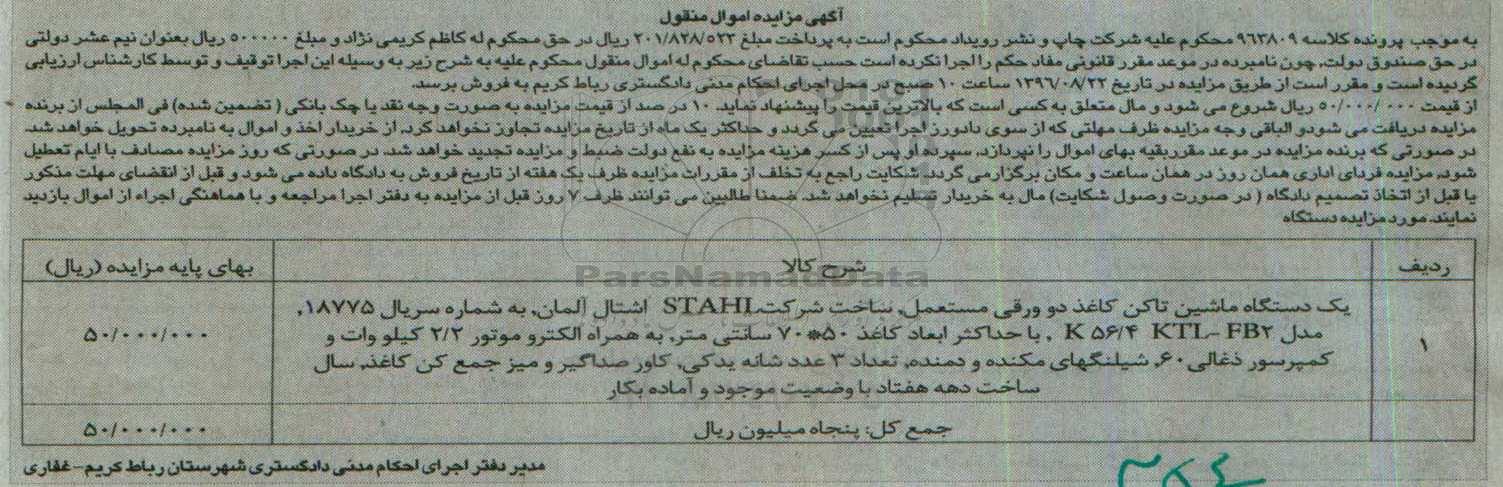 آگهی مزایده اموال منقول
به موجب پرونده کلاسه ۹۶۳۸۰۹ محکوم علیه شرکت چاپ و نشر رویداد محکوم است به پرداخت مبلغ ۲۰۱/۸۲۸/۵۲۲ ریال در حق محکوم له کاظم کریمی نژاد و مبلغ ۵۰۰۰۰۰ ریال بعنوان نیم عشر دولتی
در حق صندوق دولت، چون نامبرده در موعد مقرر قانونی مفاد حکم را اجرا نکرده است حسب تقاضای محکوم له اموال منقول محکوم علیه به شرح زیر به وسیله این اجرا توقیف و توسط کارشناس ارزیابی
گردیده است و مقرر است از طریق مزایده در تاریخ ۱۳۹۶/۰۸/۲۲ ساعت ۱۰ صبح در محل اجرای احکام مدنی دادگستری رباط کریم به فروش برسد.
از قیمت ۵۰/۰۰۰/۰۰۰ ریال شروع می شود و مال متعلق به کسی است که بالاترین قیمت را پیشنهاد نماید. ۱۰ در صد از قیمت مزایده به صورت وجه نقد یا چک بانکی ( تضمین شده) فی المجلس از برنده
مزایده دریافت می شود و الباقی وجه مزایده ظرف مهلتی که از سوی دادورز اجرا تعیین می گردد و حداکثر یک ماه از تاریخ مزایده تجاوز نخواهد کرد، از خریدار اخذ و اموال به نامبرده تحویل خواهد شد.
در صورتی که برنده مزایده در موعد مقرر بقیه بهای اموال را نپردازد، سپرده او پس از کسر هزینه مزایده به نفع دولت ضبط و مزایده تجدید خواهد شد. در صورتی که روز مزایده مصادف با ایام تعطیل
شود، مزایده فردای اداری همان روز در همان ساعت و مکان برگزار می گردد. شکایت راجع به تخلف از مقررات مزایده ظرف یک هفته از تاریخ فروش به دادگاه داده می شود و قبل از انقضای مهلت مذکور
یا قبل از اتخاذ تصمیم دادگاه ( در صورت وصول شکایت) مال به خریدار تسلیم نخواهد شد. ضمنا طالبین می توانند ظرف ۷ روز قبل از مزایده به دفتر اجرا مراجعه و با هماهنگی اجراء از اموال بازدید
نمایند. مورد مزایده دستگاه
ردیف شرح کالا بهای پایه مزایده (ریال)
ParsNamadData
یک دستگاه ماشین تاکن کاغذ دو ورقی مستعمل، ساخت شرکت STAHL اشتال آلمان، به شماره سریال ۱۸۷۷۵،
۱ مدل K ۵۶/۴ KTL- FB۲ ، با حداکثر ابعاد کاغذ ۵۰*۷۰ سانتی متر، به همراه الکترو موتور ۲/۲ کیلو وات و ۵۰/۰۰۰/۰۰۰
کمپرسور ذغالی ۶۰، شیلنگهای مکنده و دمنده، تعداد ۳ عدد شانه یدکی، کاور صداگیر و میز جمع کن کاغذ، سال
ساخت دهه هفتاد با وضعیت موجود و آماده بکار
جمع کل: پنجاه میلیون ریال ۵۰/۰۰۰/۰۰۰
مدیر دفتر اجرای احکام مدنی دادگستری شهرستان رباط کریم-غفاری